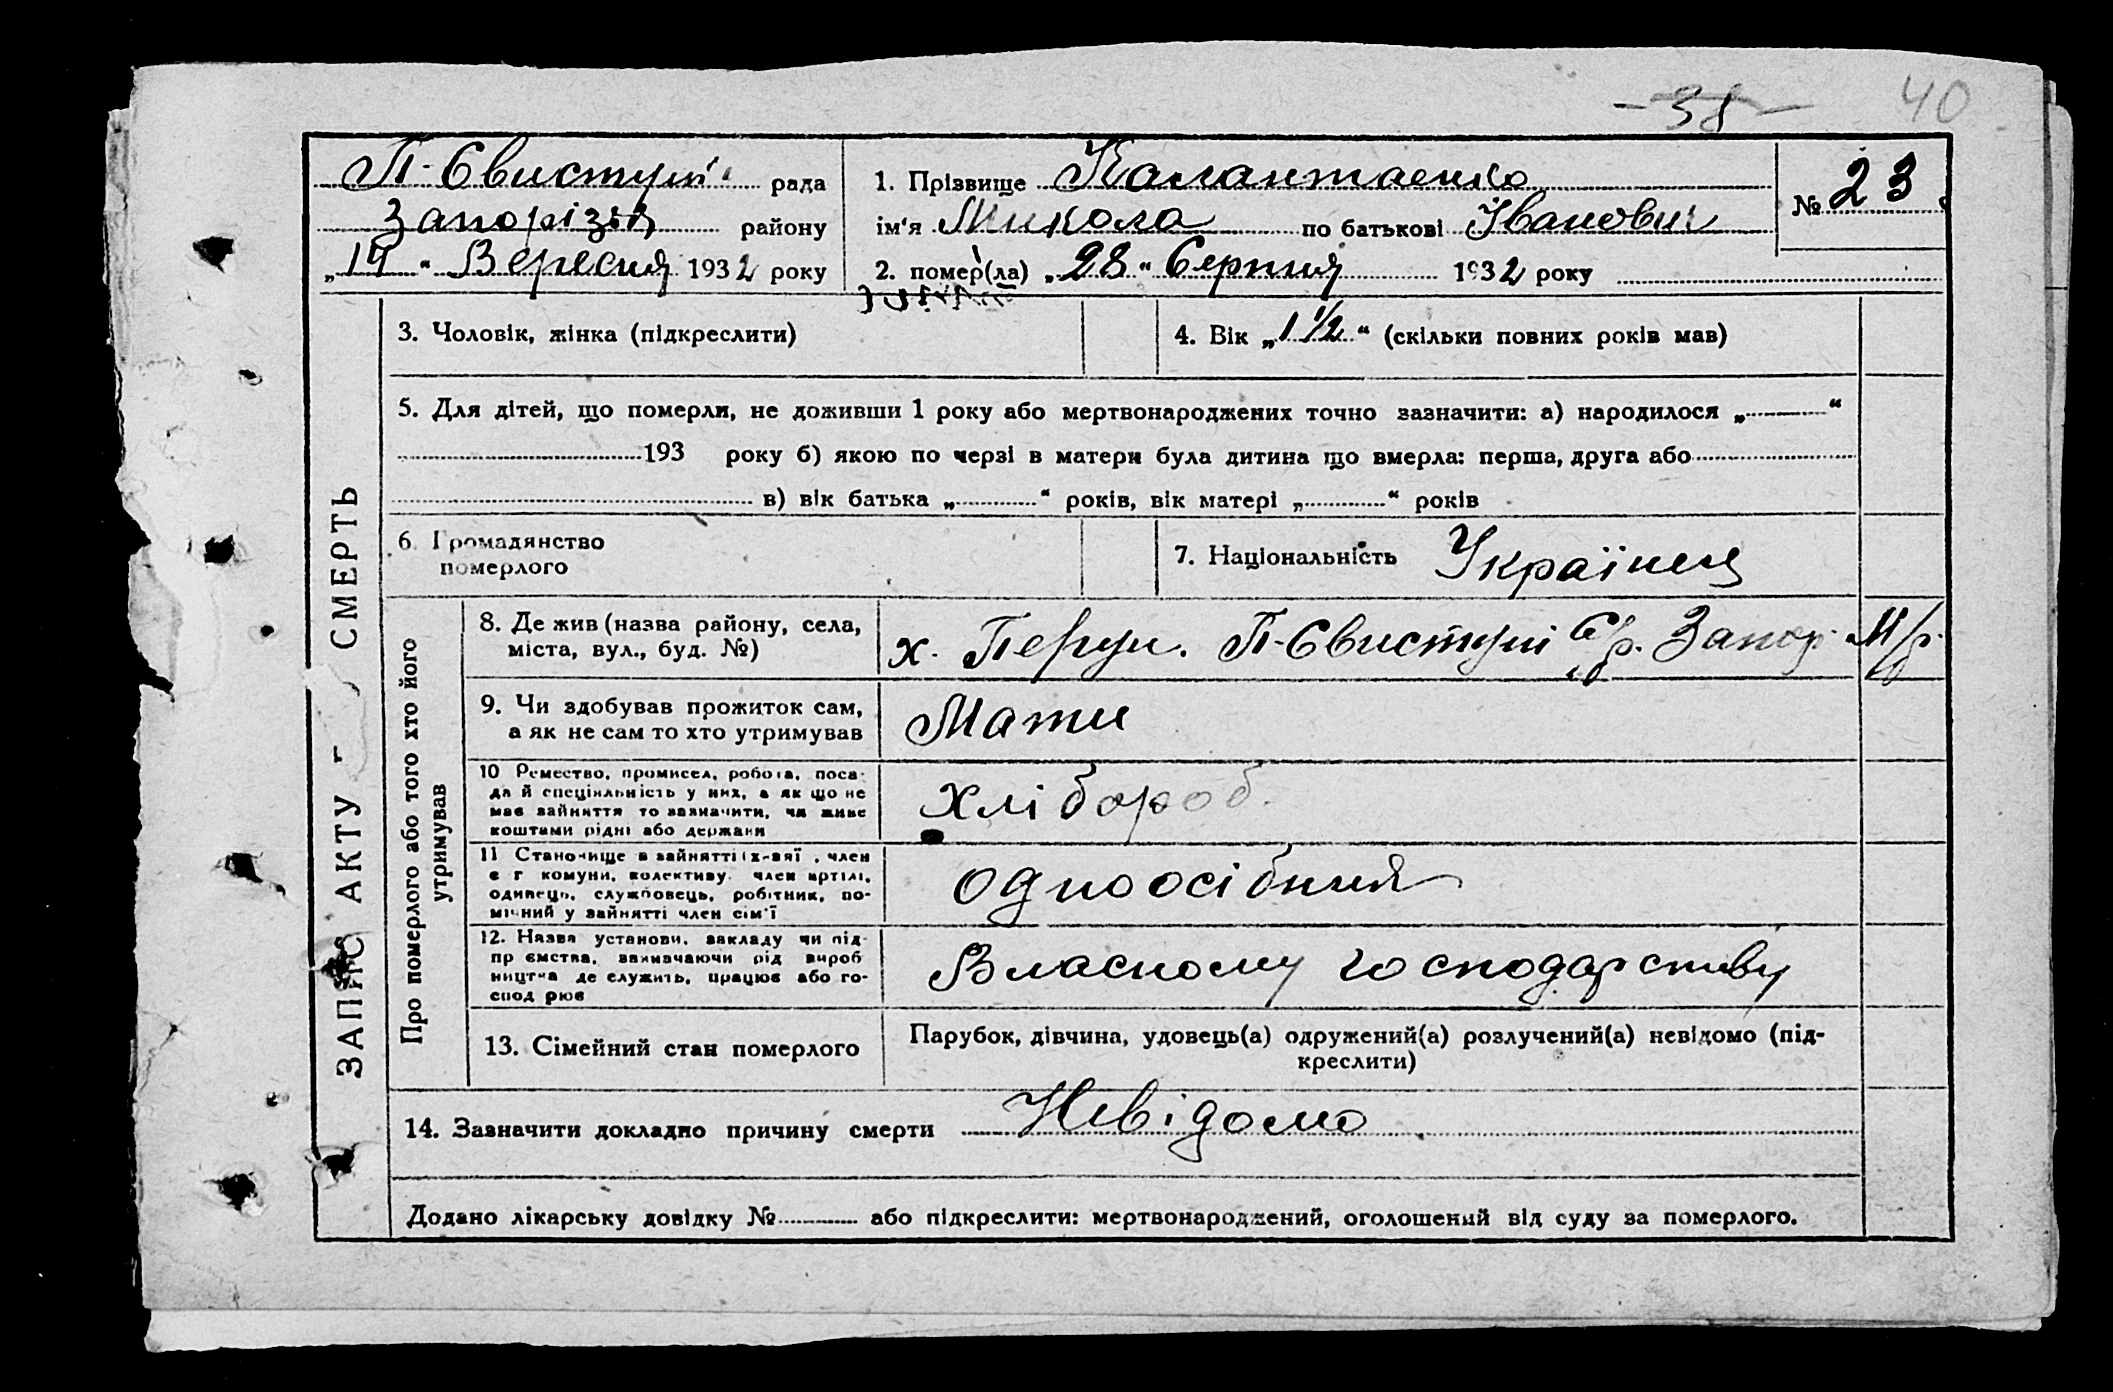 38 40
П-Євистуні рада
Запорізьк району
„19“ Вересня 1932 року
1. Прізвище Калантаенко
ім'я Микола по батькові Іванович
№ 23
2. помер(ла) „28“ Серпня 1932 року
3. Чоловік, жінка (підкреслити)
4. Вік „1½“ (скільки повних років мав)
5. Для дітей, що померли, не доживши 1 року або мертвонароджених точно зазначити: а) народилося „ “
193 року б) якою по черзі в матери була дитина що вмерла: перша, друга або
в) вік батька „ “ років, вік матері „ “ років
6. Громадянство
померлого
7. Національність Українец
ЗАПИС АКТУ СМЕРТЬ
Про померлого або того хто його
утримував
8. Де жив (назва району, села,
міста, вул., буд. №)
х. Перун. П-Євистуні С/р. Запор. М/р.
9. Чи здобував прожиток сам,
а як не сам то хто утримував
Мати
10 Ремество, промисел, робота, поса-
да й спеціяльність у них, а як що не
має зайняття то зазначити, чи живе
коштами рідні або держави
Хлібороб.
11 Становище в зайнятті , член
с г комуни, колективу, член артілі,
одинець, службовець, робітник, по-
мічний у зайнятті член сім'ї
одноосібния
12. Назва установи, закладу чи під-
пр ємства, зазначаючи рід вироб
ництва де служить, працює або го-
спод рює
Власному господарству
13. Сімейний стан померлого
Парубок, дівчина, удовець(а) одружений(а) розлучений(а) невідомо (під-
креслити)
14. Зазначити докладно причину смерти Невідомо
Додано лікарську довідку № або підкреслити: мертвонароджений, оголошений від суду за померлого.